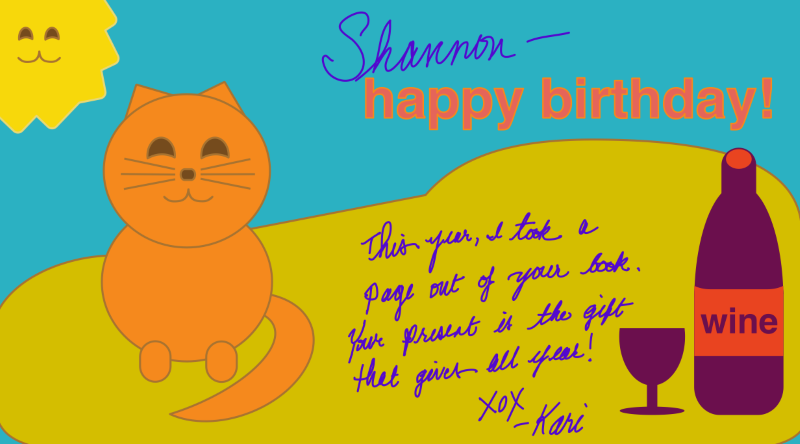 Shannon —
happy birthday!
This year, I took a
page out of your book.
Your present is the gift
that gives all year!
XOX
– Kari
wine